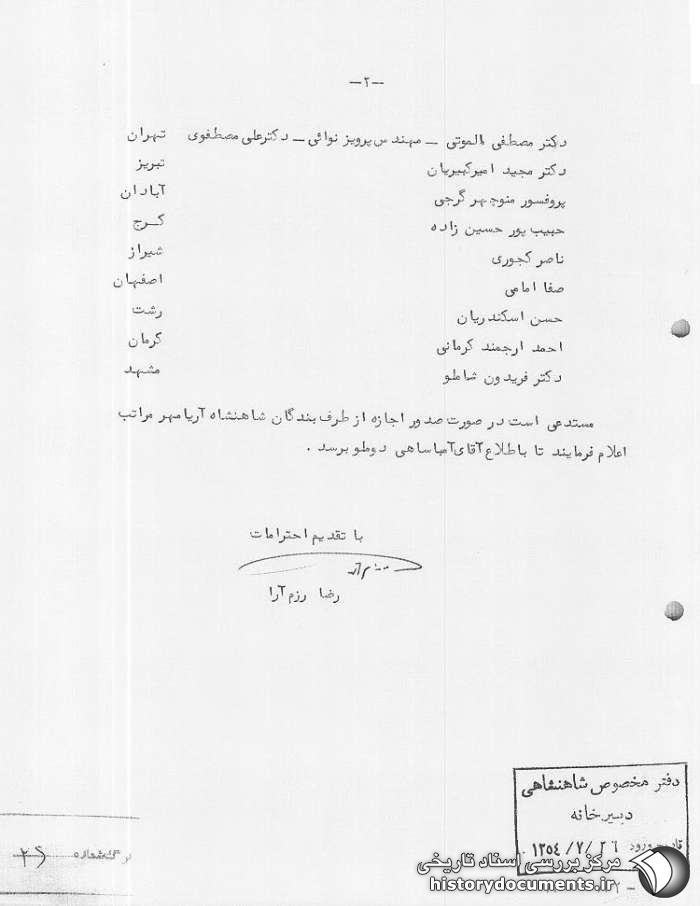 -۲-
دکتر مصطفی الموتی - مهندس پرویز نوائی - دکتر علی مصطفوی تهران
دکتر مجید امیرکبیریان تبریز
پروفسور منوچهر گرجی آبادان
حبیب پور حسین زاده کرج
ناصر کجوری شیراز
صفا امامی اصفهان
حسن اسکندریان رشت
احمد ارجمند کرمانی کرمان
دکتر فریدون شاملو مشهد
مستدعی است در صورت صدور اجازه از طرف بندگان شاهنشاه آریامهر مراتب
اعلام فرمایند تا باطلاع آقای آساهی دوملو برسد .
با تقدیم احترامات
رضا رزم آرا
دفتر مخصوص شاهنشاهی
دبیرخانه
ورود ۱۳۵۴/۷/۲۶
شماره
مرکز بررسی اسناد تاریخی
historydocuments.ir